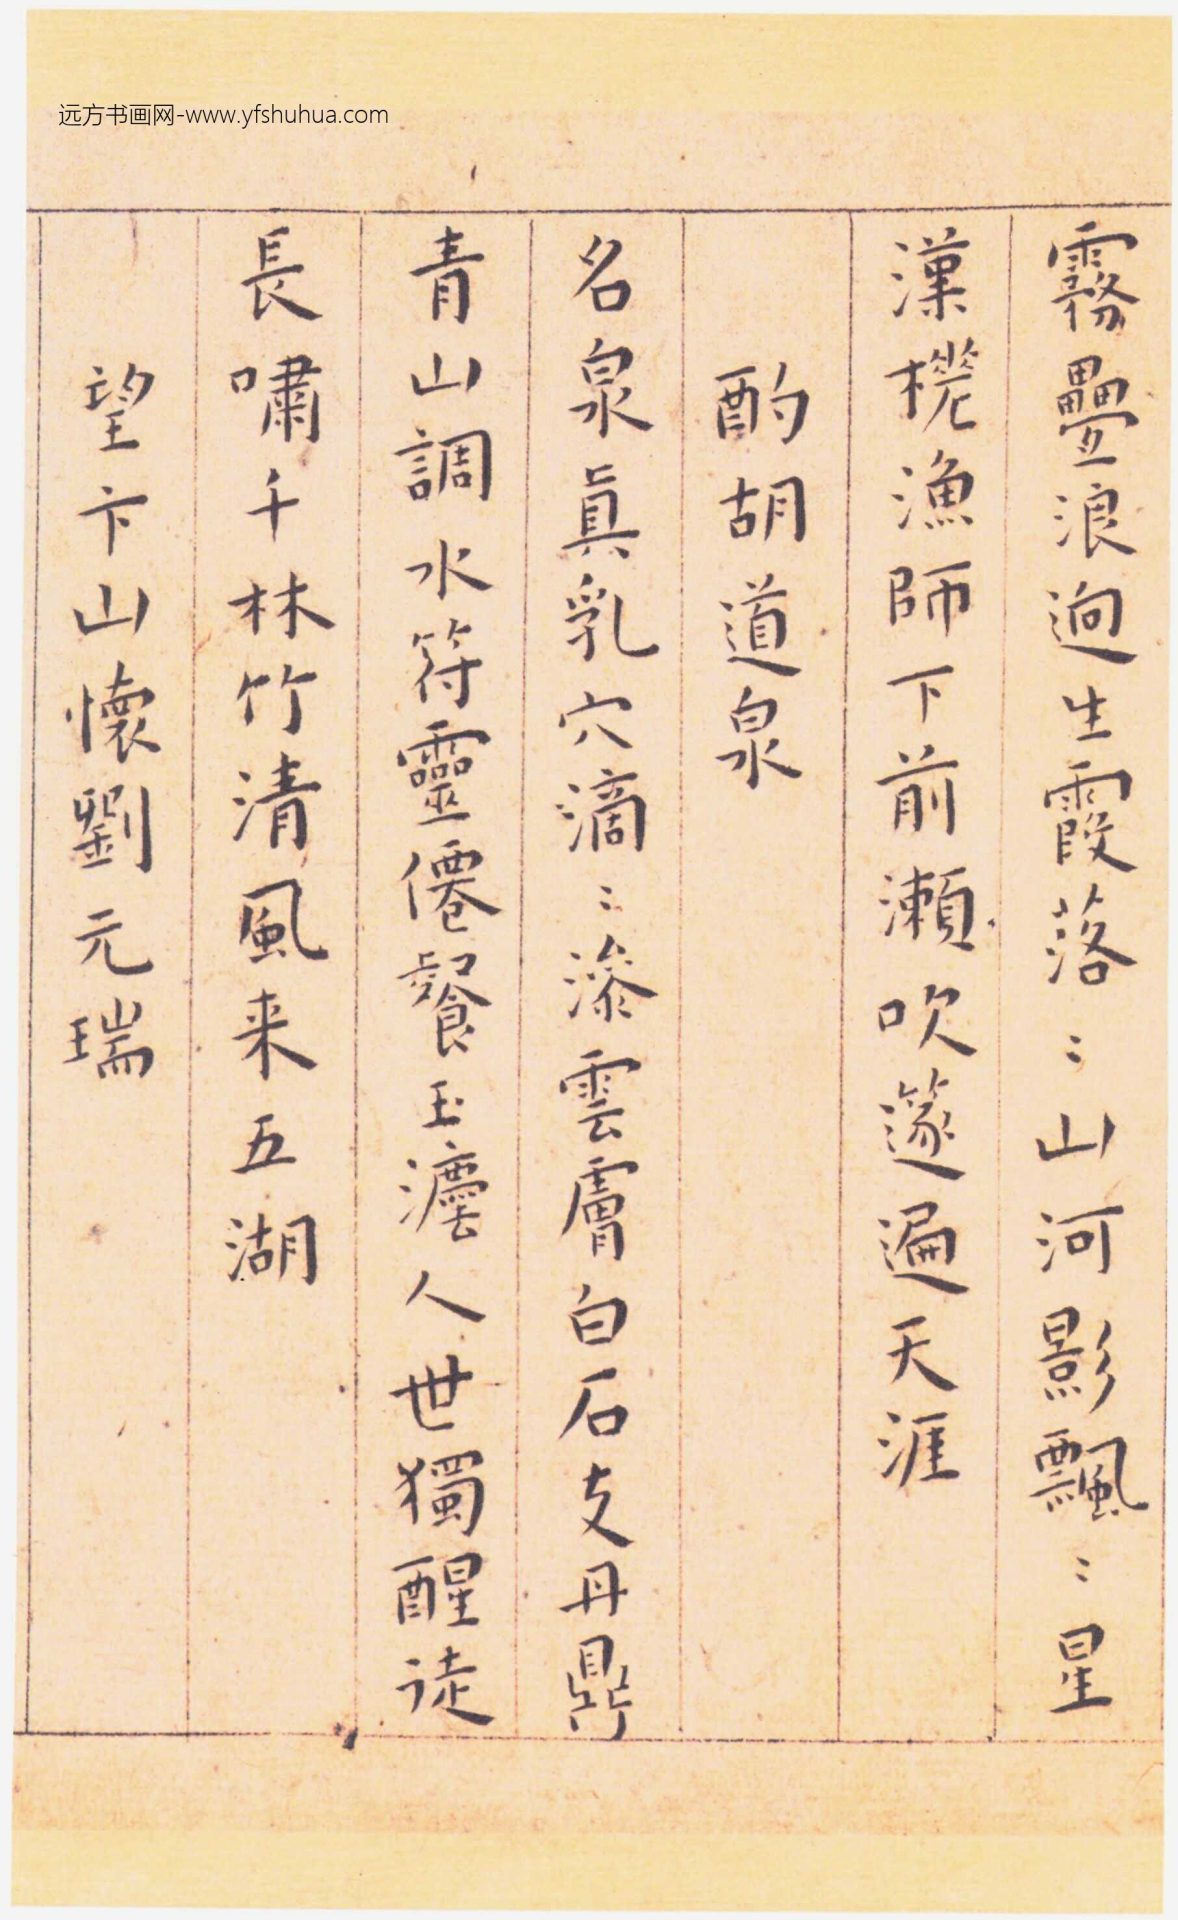 远方书画网-www.yfshuhua.com
霧疊浪迥生霞落〻山河影飄〻星
漢槎漁師下前瀬吹篴遍天涯
酌胡道泉
名泉眞乳穴滴〻滲雲膚白石支丹鼎
青山調水符靈僊餐玉瀣人世獨醒徒
長嘯千林竹清風来五湖
望卞山懷劉元瑞